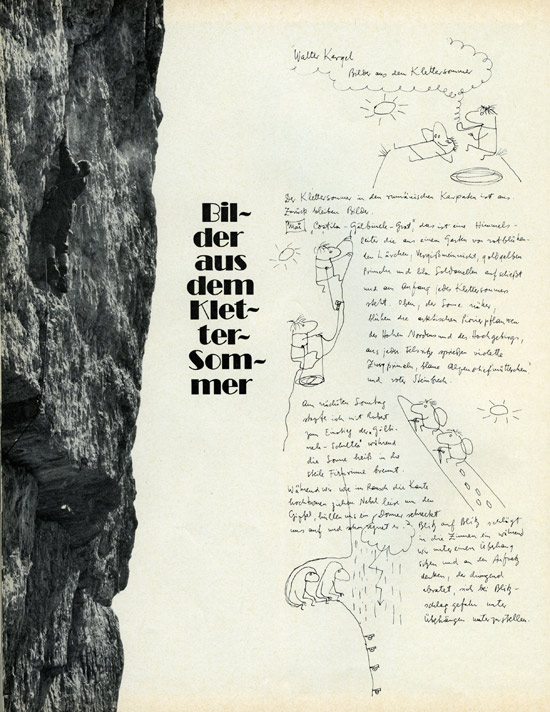 Bil-
der
aus
dem
Klet-
ter-
Som-
mer
Walter Kargel
Bilder aus dem Klettersommer
Der Klettersommer in den rumänischen Karpaten ist aus
Zurück bleiben Bilder.
Mai "Costila-Gălbinele-Grat" das ist eine Himmels-
leiter die aus einem Garten von rotblühen-
den Lärchen, Vergißmeinnicht, goldgelben
Primeln und lila Soldanellen aufschießt
und am Anfang jedes Klettersommers
steht. Oben, der Sonne näher,
blühen die arktischen Pionierpflanzen
des Hohen Nordens und der Hochgebirge,
aus jeder Felsritze sprießen violette
Zwergprimeln, blaue
und roter Steinbrech.
Am nächsten Sonntag
ich mit
zum Einstieg der "Gălbi-
nele-Schulter" während
die Sonne heiß in die
steile Firnrinne brennt.
Während wir wie im Rausch die Kante
hochturnen ziehen Nebel leise um den
Gipfel, hüllen uns ein, Donner schreckt
uns auf und schon regnet es.
Blitz auf Blitz schlägt
in die Zinnen ein während
wir unter einem Überhang
sitzen und an den Aufsatz
denken, der dringend
abratet, sich bei Blitz-
schlaggefahr unter
Überhängen unterzustellen.